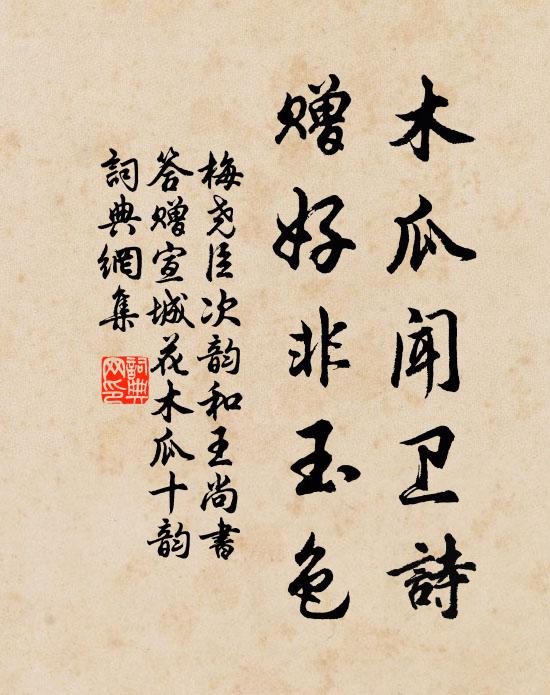 木瓜闻卫詩
赠好非玉色
梅尧臣次韵和王尚書
答赠宣城花木瓜十韵
詞典網集
詞典
网印